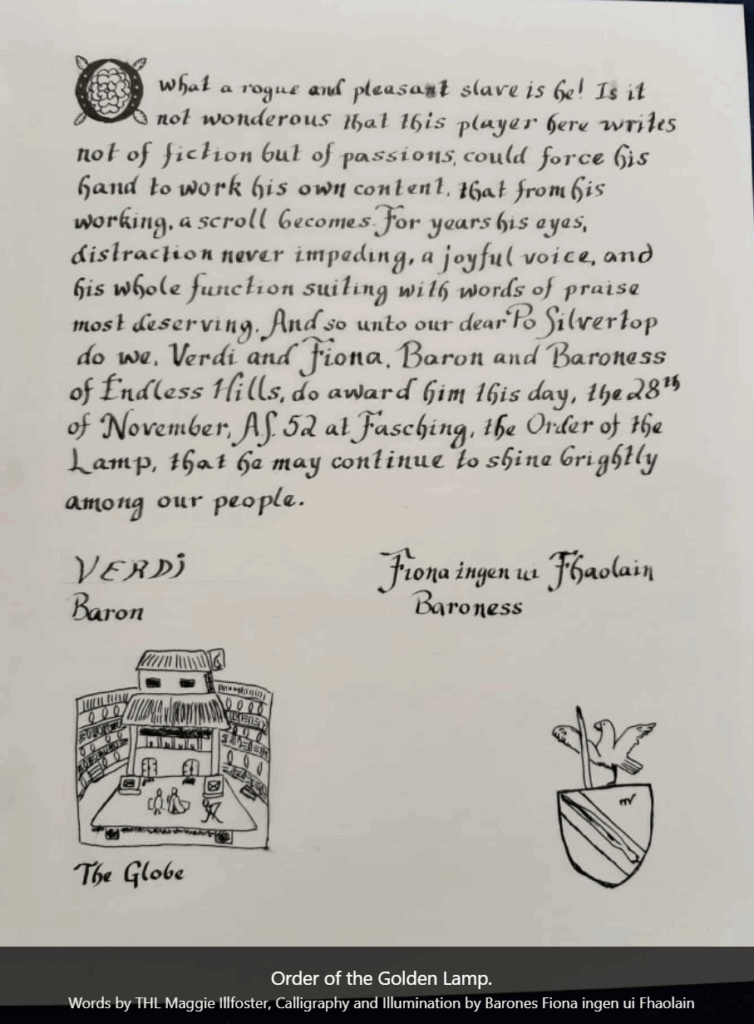 O what a rogue and pleasant slave is he! Is it
not wonderous that this player here writes
not of fiction but of passions, could force his
hand to work his own content, that from his
working, a scroll becomes. For years his eyes,
distraction never impeding, a joyful voice, and
his whole function suiting with words of praise
most deserving. And so unto our dear Po Silvertop
do we, Verdi and Fiona, Baron and Baroness
of Endless Hills, do award him this day, the 28th
of November, AS. 52 at Fasching, the Order of the
Lamp, that he may continue to shine brightly
among our people.
VERDi
Baron
Fiona ingen ui Fhaolain
Baroness
The Globe
Order of the Golden Lamp.
Words by THL Maggie Illfoster, Calligraphy and Illumination by Barones Fiona ingen ui Fhaolain